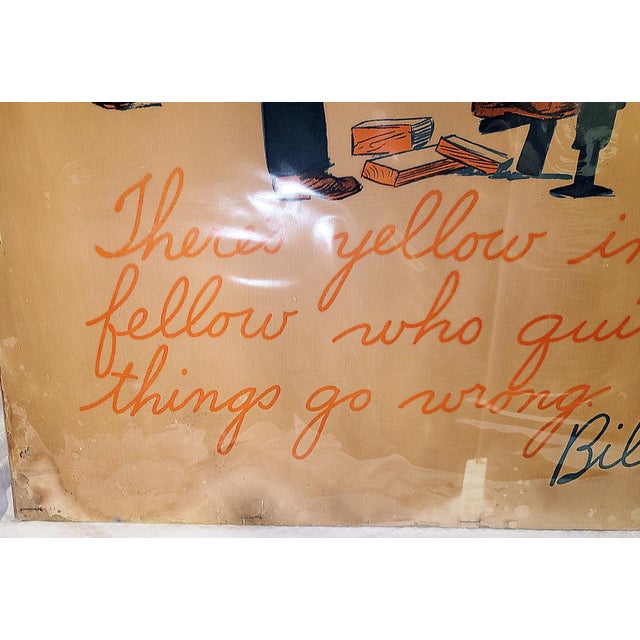 There's yellow in
fellow who qui
things go wrong.
Bil